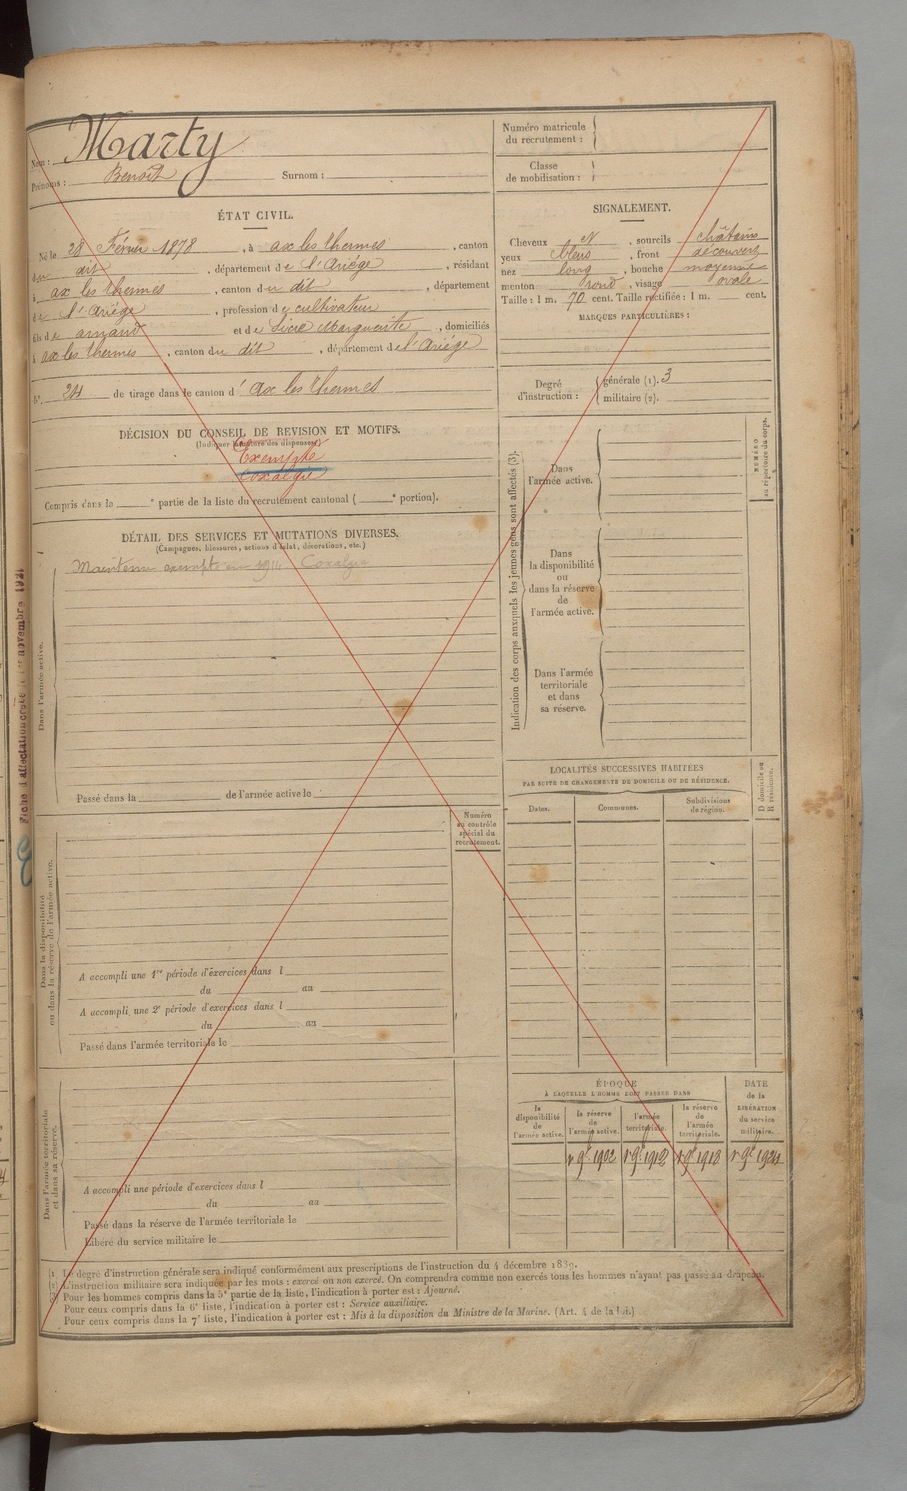 Nom : Marty
Prénoms : Benoit Surnom :
ÉTAT CIVIL.
Né le 28 Février 1878, à ax les thermes, canton
du dit, département de l'Ariége, résidant
à ax les thermes, canton du dit, département
de l'Ariége, profession de cultivateur
fils de arnaud et de Marguerite, domiciliés
à ax les thermes, canton du dit, département de l'Ariége
N° de tirage dans le canton d'ax les thermes
DÉCISION DU CONSEIL DE REVISION ET MOTIFS.
(Indiquer la nature des dispenses)
Exempté
Coxalgie
Compris dans la e partie de la liste du recrutement cantonal ( e portion).
DÉTAIL DES SERVICES ET MUTATIONS DIVERSES.
(Campagnes, blessures, actions d'éclat, décorations, etc.)
Dans l'armée active.
Maintenu exempté en 1914 Coxalgie
Passé dans la de l'armée active le
Numéro
au contrôle
spécial du
recrutement.
Dans la disponibilité
ou dans la réserve de l'armée active.
A accompli une 1re période d'exercices dans l
du au
A accompli une 2e période d'exercices dans l
du au
Passé dans l'armée territoriale le
Dans l'armée territoriale
et dans sa réserve.
A accompli une période d'exercices dans l
du au
Passé dans la réserve de l'armée territoriale le
Libéré du service militaire le
Numéro matricule
du recrutement :
Classe
de mobilisation :
SIGNALEMENT.
Cheveux et, sourcils châtains
yeux bleus, front découvert
nez long, bouche moyenne
menton rond, visage ovale
Taille : 1 m. 70 cent. Taille rectifiée : 1 m. cent.
MARQUES PARTICULIÈRES :
Degré
d'instruction :
générale (1). 3
militaire (2).
Indication des corps auxquels les jeunes gens sont affectés (3).
NUMÉRO
au répertoire du corps.
Dans
l'armée active.
Dans
la disponibilité
ou
dans la réserve
de
l'armée active.
Dans l'armée
territoriale
et dans
sa réserve.
LOCALITÉS SUCCESSIVES HABITÉES
PAR SUITE DE CHANGEMENTS DE DOMICILE OU DE RÉSIDENCE.
Dates. Communes. Subdivisions
de région.
D domicile ou
R résidence.
ÉPOQUE
À LAQUELLE L'HOMME DOIT PASSER DANS
DATE
de la
LIBÉRATION
du service
militaire.
la
disponibilité
de
l'armée active.
la réserve
de
l'armée active.
l'armée
territoriale.
la réserve
de
l'armée
territoriale.
1902 1912 1918 1924
(1) Le degré d'instruction générale sera indiqué conformément aux prescriptions de l'instruction du 4 décembre 1889.
(2) L'instruction militaire sera indiquée par les mots : exercé ou non exercé. On comprendra comme non exercés tous les hommes n'ayant pas passé au drapeau.
(3) Pour les hommes compris dans la 5e partie de la liste, l'indication à porter est : Ajourné.
Pour ceux compris dans la 6e liste, l'indication à porter est : Service auxiliaire.
Pour ceux compris dans la 7e liste, l'indication à porter est : Mis à la disposition du Ministre de la Marine. (Art. 4 de la loi.)